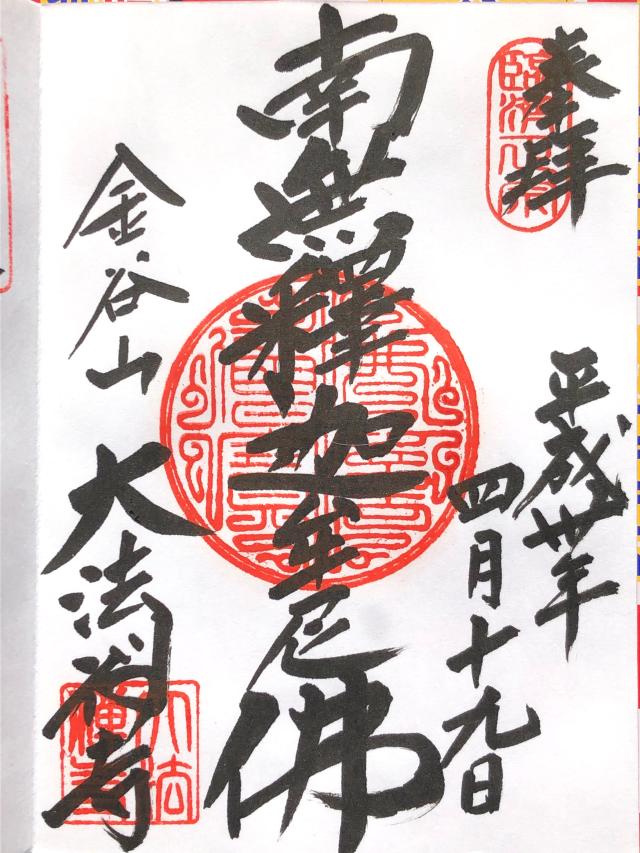 奉拝
臨済正宗
平成卅年
四月十九日
南無釋迦牟尼佛
金谷山
大法禅寺
大法
禪寺